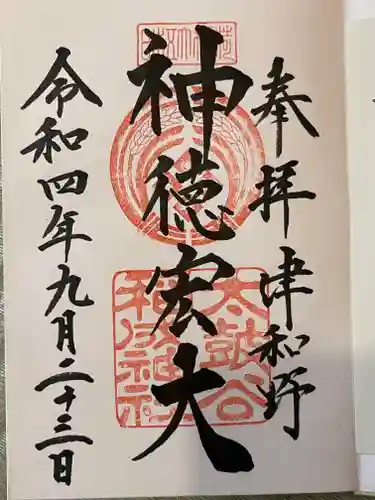 奉拝 津和野
神徳宏大
太皷谷稲成神社
令和四年九月二十三日